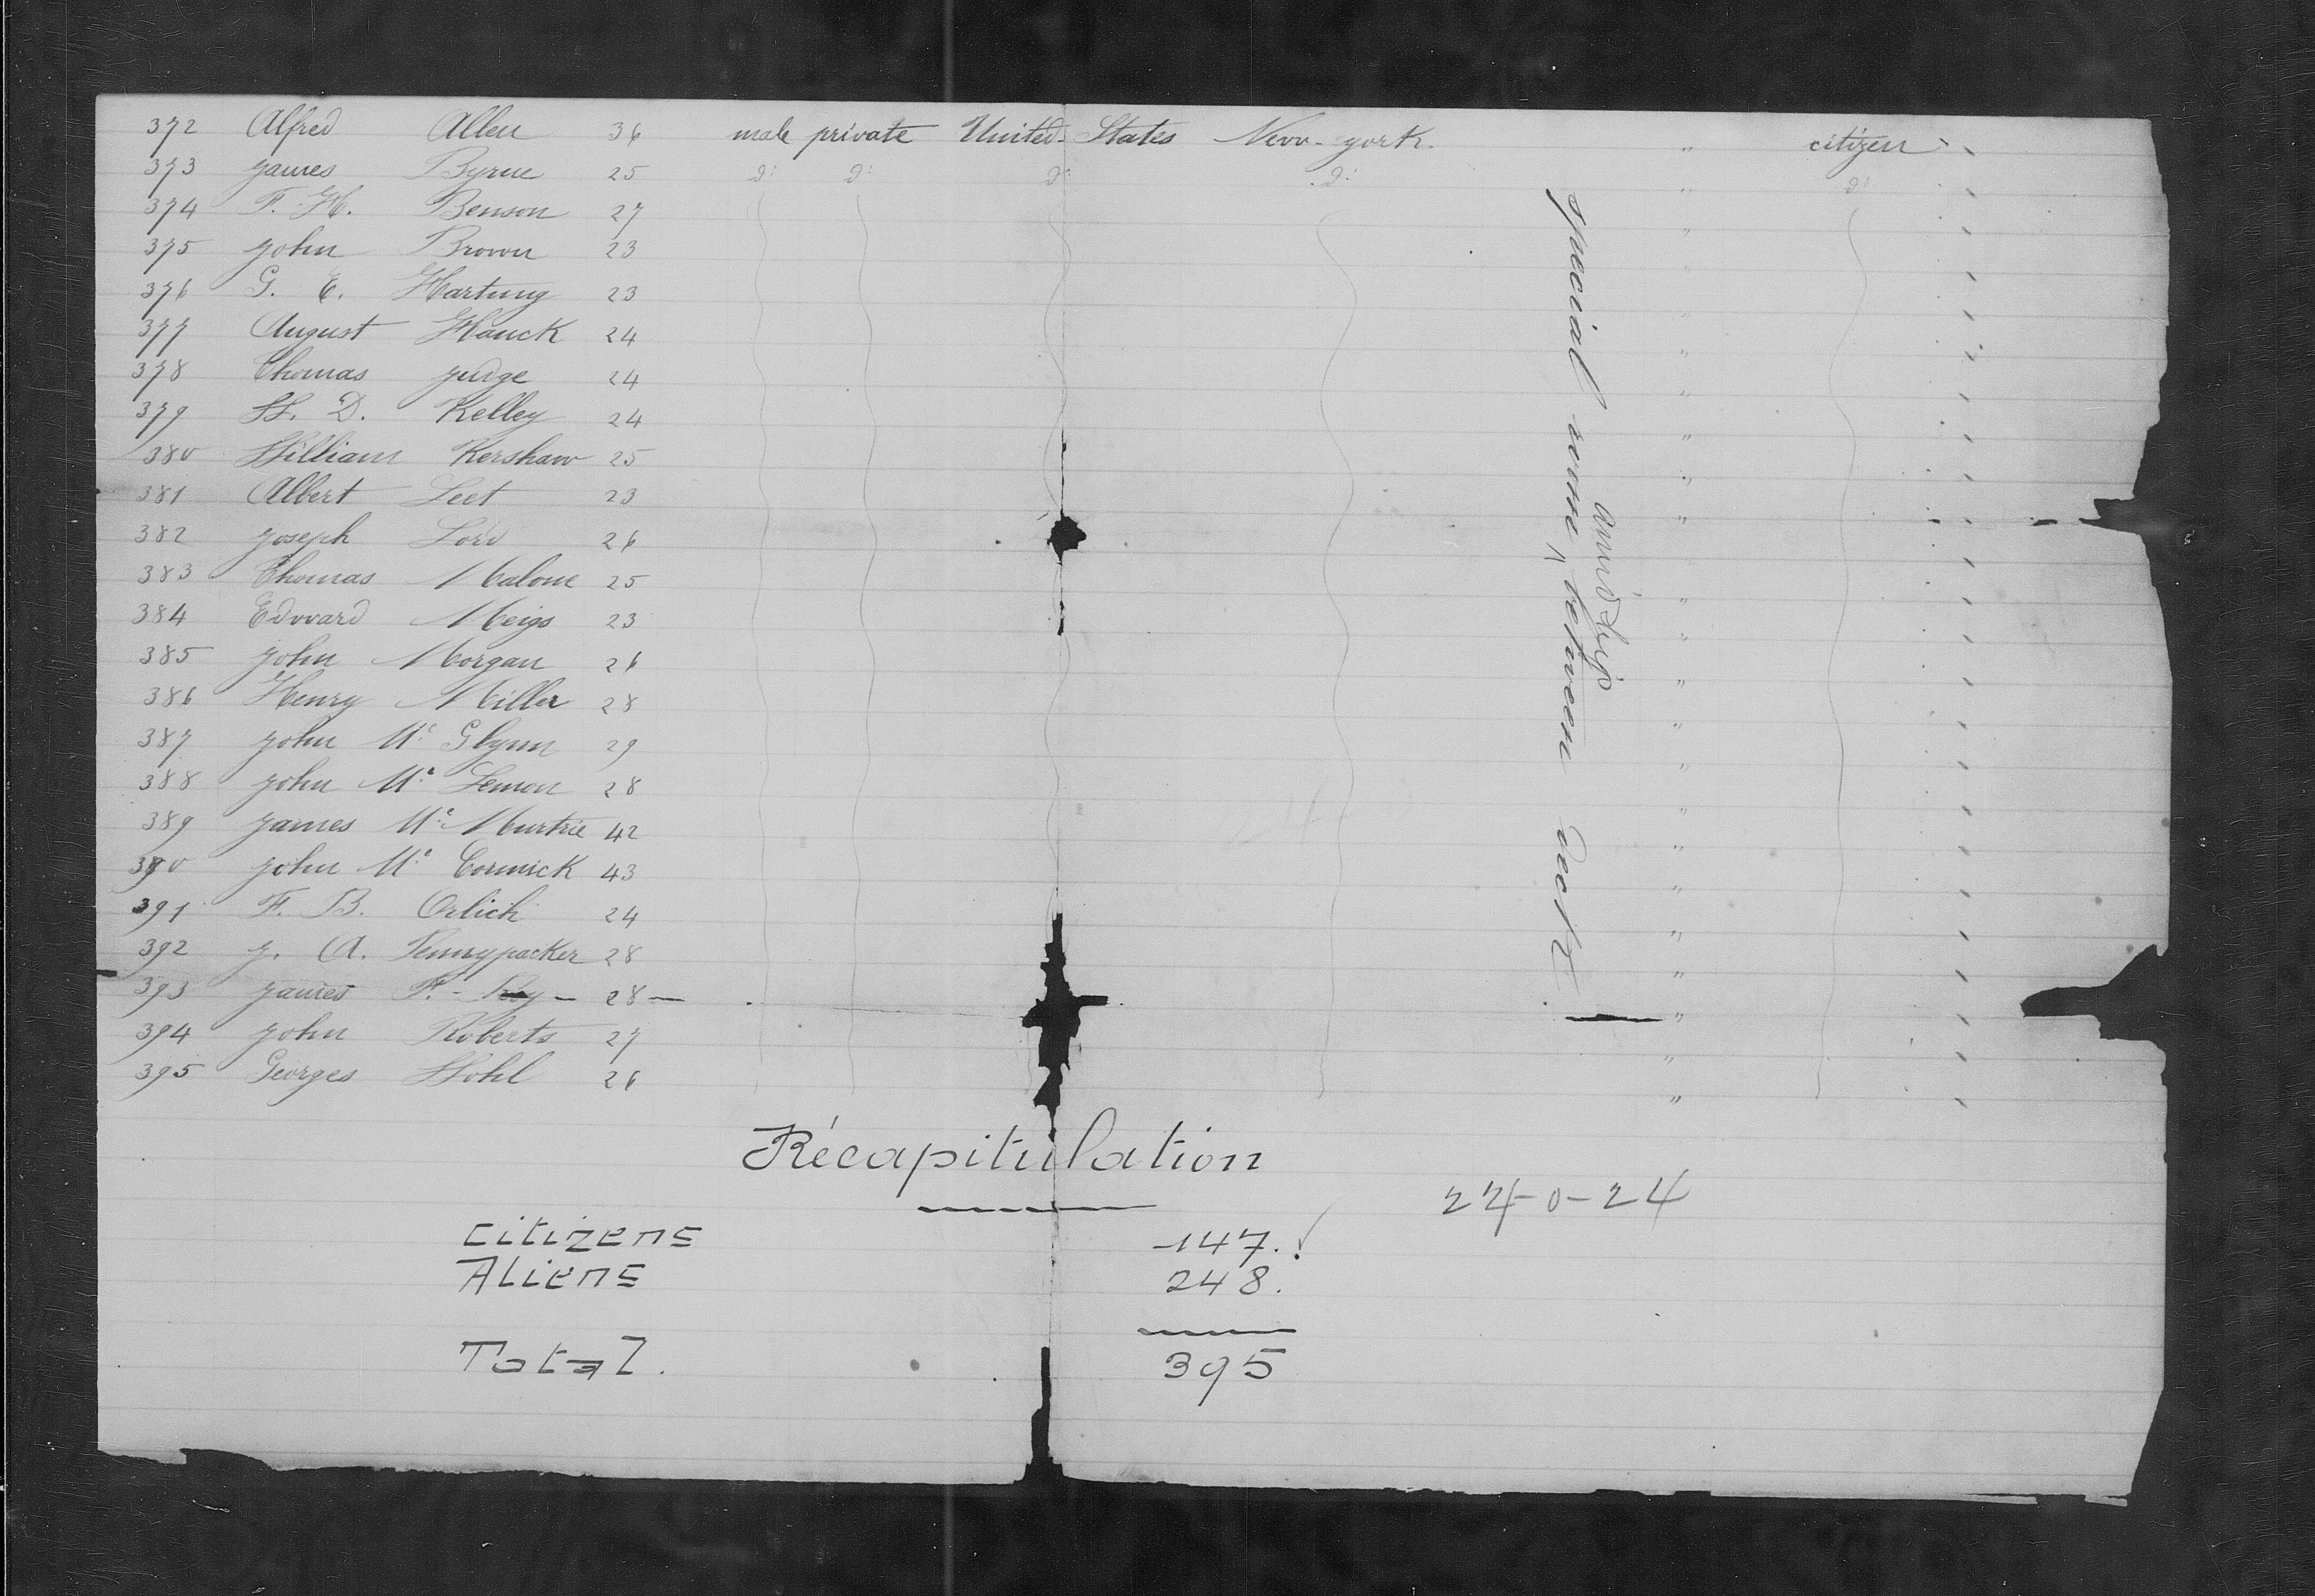 372 Alfred Allen 36 male private United-States New-york " citizen "
373 james Byrne 25 d: d: d: d: " d:
374 F. H. Benson 27 "
375 john Brown 23 "
376 G. E. Hartung 23 "
377 August Hauck 24 "
378 Thomas judge 24 "
379 W. D. Kelley 24 "
380 William Kershaw 25 "
381 Albert Leet 23 "
382 joseph Lord 26 "
383 Thomas Malone 25 "
384 Edward Meigs 23 "
385 john Morgan 26 "
386 Henry Miller 28 "
387 john Mc Glynn 29 "
388 john Mc Lemon 28 "
389 james Mc Murtrie 42 "
390 john Mc Cormick 43 "
391 F. B. Orlich 24 "
392 j. A. Pennypacker 28 "
393 james F. - Roy - 28 - "
394 john Roberts 27 "
395 Georges Wohl 26 "
special room between deck
amidship
Récapitulation
24-0-24
Citizens 147.
Aliens 248.
Total. 395